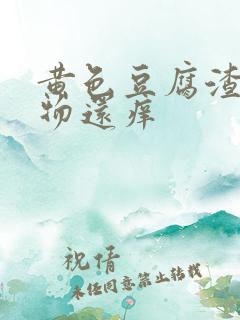 黄色豆腐渣
物還痒
祝倩
未经同意禁止转载